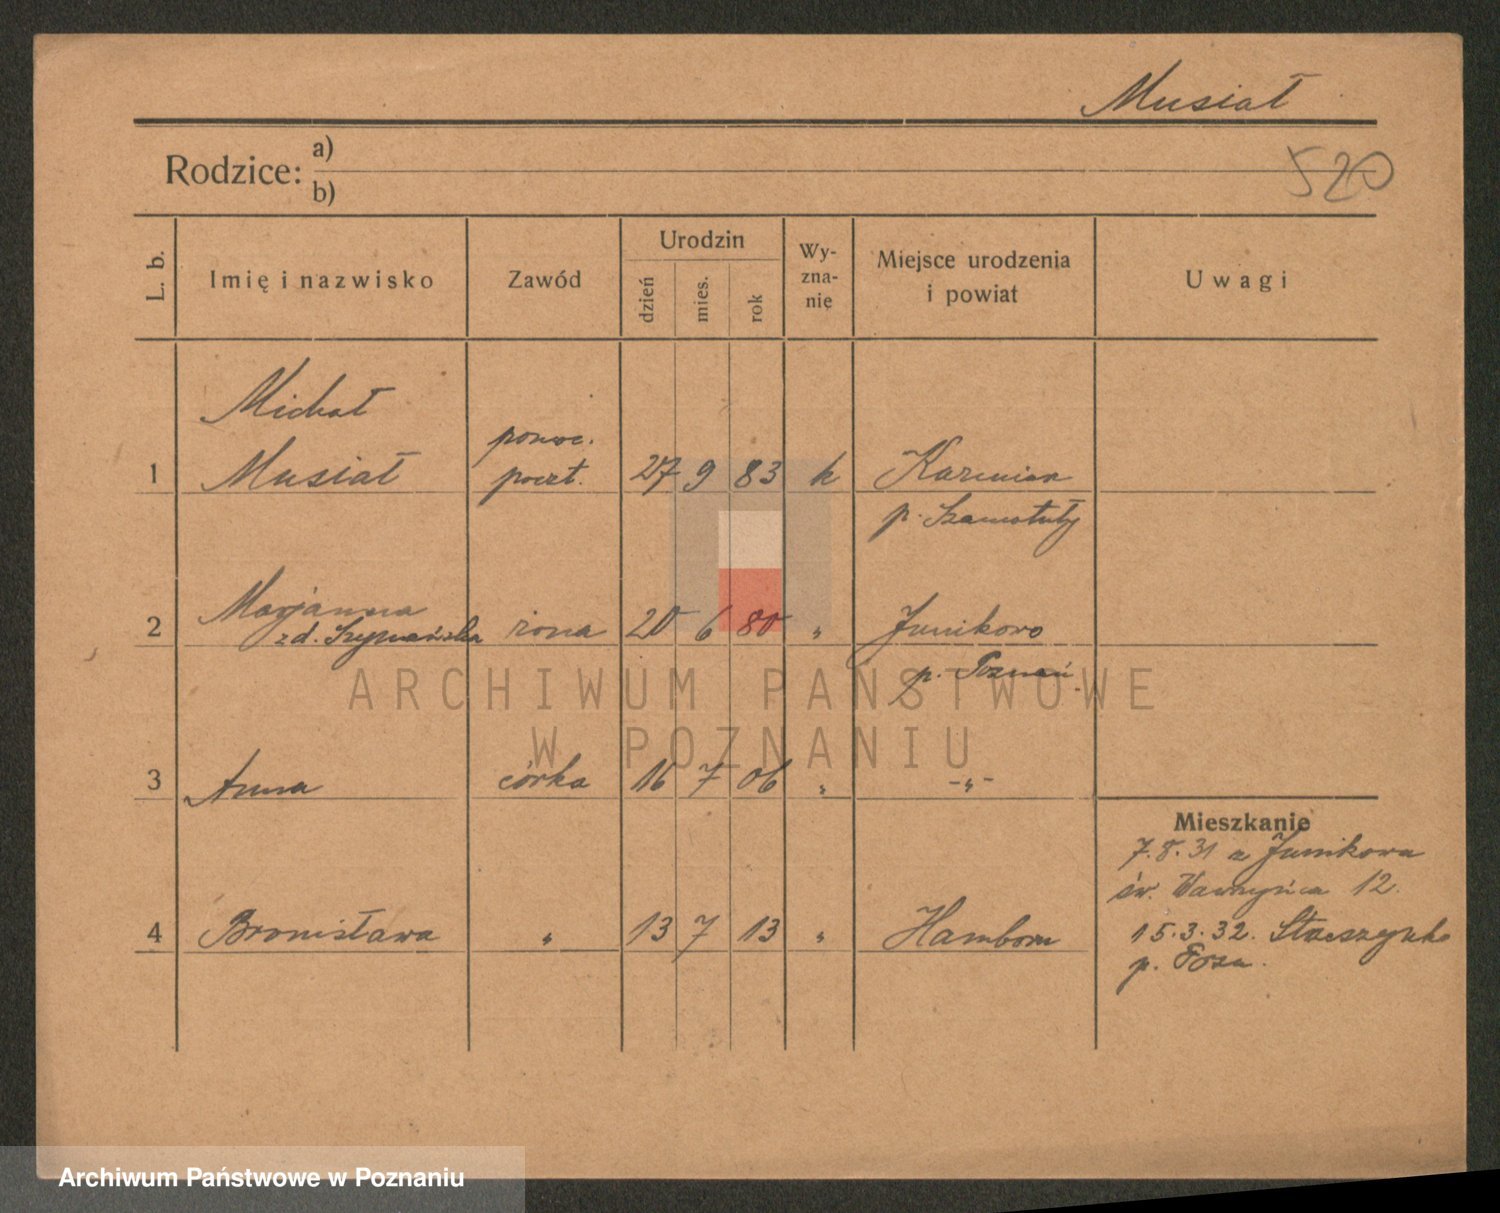 Musiał
Rodzice: a)
b)
520
L. b.
Imię i nazwisko
Zawód
Urodzin
dzień
mies.
rok
Wy-
zna-
nie
Miejsce urodzenia
i powiat
Uwagi
Michał
pomoc.
1 Musiał poczt. 27 9 83 k Kazmierz
p. Szamotuły
Marjanna
2 zd. Szymańska żona 20 6 80 " Junikowo
p. Poznań
3 Anna córka 16 7 06 " -"-
Mieszkanie
7.8.31 z Junikowa
św. Wawrzyńca 12.
4 Bronisława " 13 7 13 " Hamborn
15.3.32.
p. Pozn.
ARCHIWUM PAŃSTWOWE
W POZNANIU
Archiwum Państwowe w Poznaniu